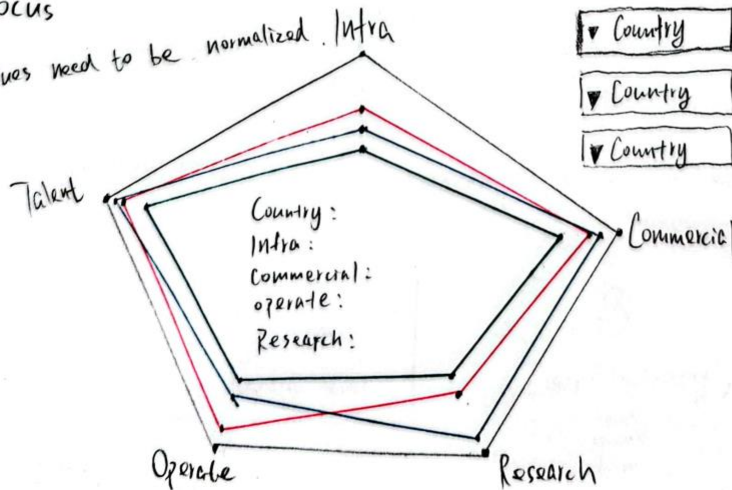 ocus
ues need to be normalized.
Infra
▼ Country
▼ Country
▼ Country
Talent
Commercial
Country:
Infra:
Commercial:
operate:
Research:
Operate
Research